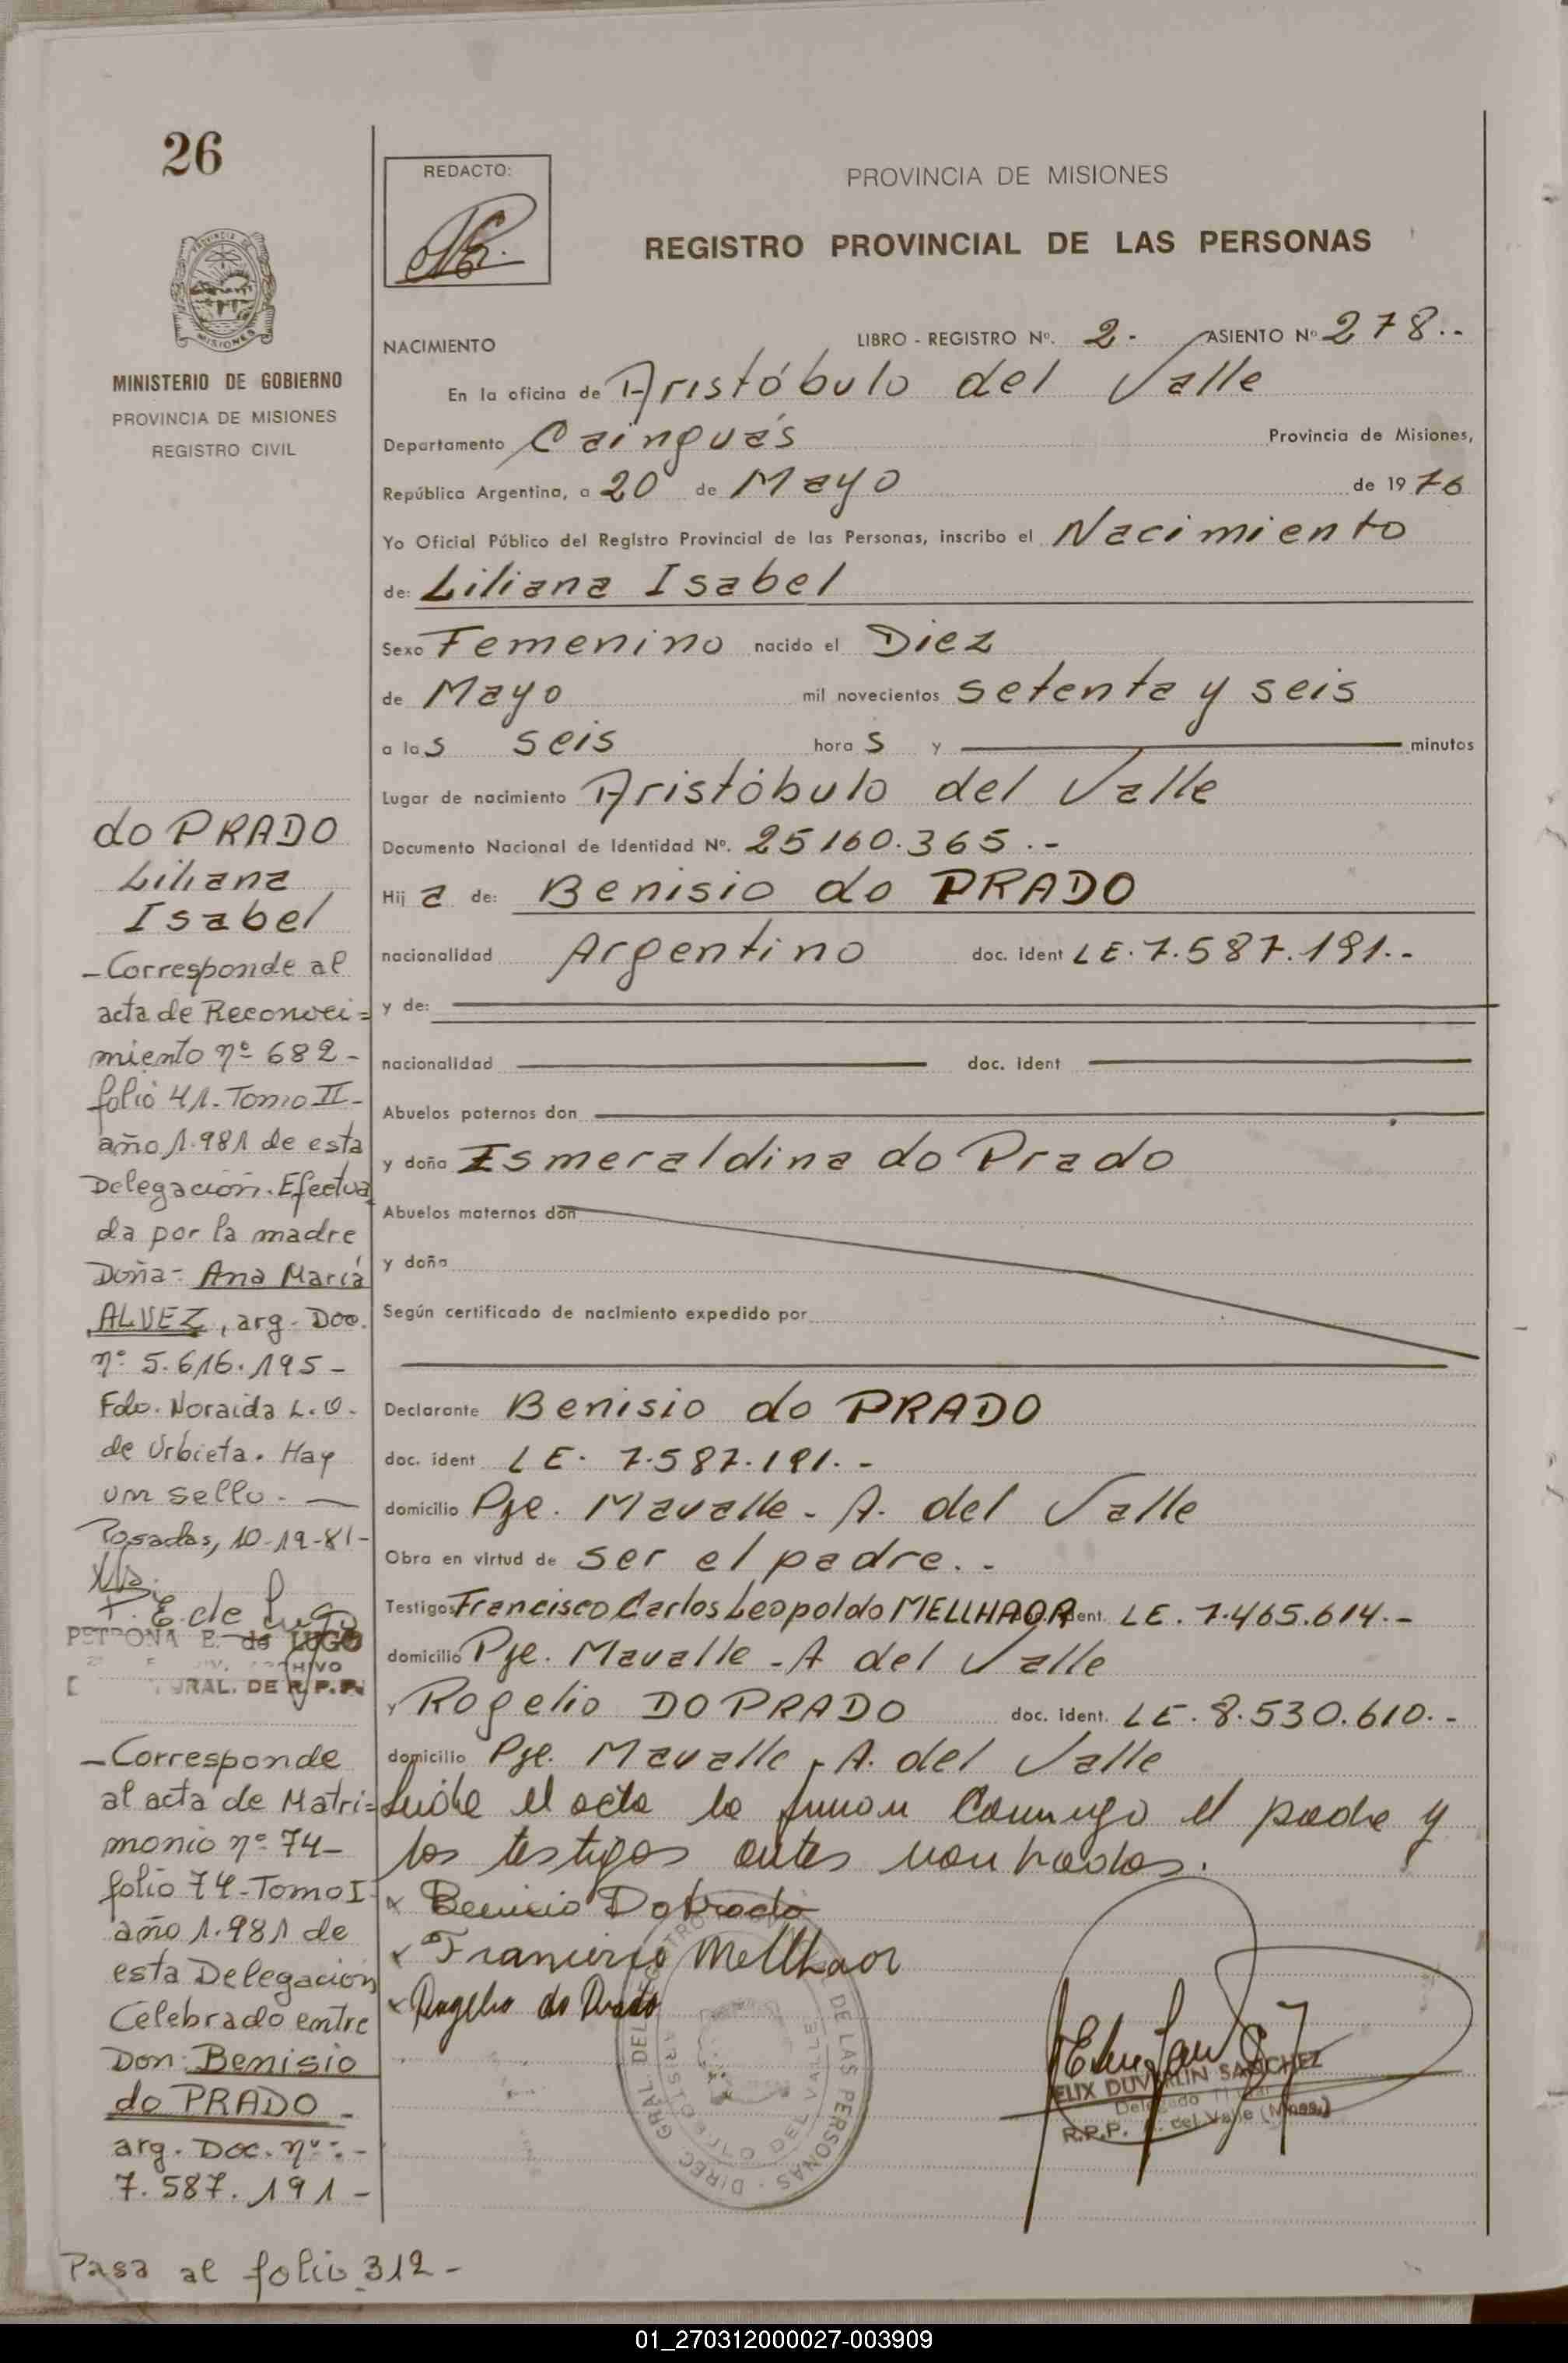 26
PROVINCIA DE MISIONES
MINISTERIO DE GOBIERNO
PROVINCIA DE MISIONES
REGISTRO CIVIL
do PRADO
Liliana
Isabel
- Corresponde al
acta de Reconoci=
miento nº 682 -
folio 41. Tomo II -
año 1.981 de esta
Delegación. Efectua
da por la madre
Doña - Ana María
ALVEZ, arg. Doc.
nº 5.616.195 -
Fdo. Noraida L. O.
de Urbieta. Hay
um sello. —
Posadas, 10-12-81-
P. E. de Lugo
PETRONA E. de LUGO
ARCHIVO
GRAL. DE R.P.P.
- Corresponde
al acta de Matri=
monio nº 74 -
folio 74 - Tomo I
año 1.981 de
esta Delegación
Celebrado entre
Don: Benisio
do PRADO -
arg. Doc. nº: -
7.587.191 -
Pasa al folio 312 -
REDACTO:
PROVINCIA DE MISIONES
REGISTRO PROVINCIAL DE LAS PERSONAS
NACIMIENTO LIBRO - REGISTRO Nº. 2.- ASIENTO Nº 278.-
En la oficina de Aristóbulo del Valle
Departamento Cainguás Provincia de Misiones,
República Argentina, a 20 de Mayo de 1976
Yo Oficial Público del Registro Provincial de las Personas, inscribo el Nacimiento
de: Liliana Isabel
Sexo Femenino nacido el Diez
de Mayo mil novecientos setenta y seis
a las seis horas y minutos
Lugar de nacimiento Aristóbulo del Valle
Documento Nacional de Identidad Nº. 25160.365.-
Hija de: Benisio do PRADO
nacionalidad Argentino doc. ident LE. 7.587.191.-
y de:
nacionalidad doc. ident
Abuelos paternos don
y doña Esmeraldina do Prado
Abuelos maternos don
y doña
Según certificado de nacimiento expedido por
Declarante Benisio do PRADO
doc. ident LE. 7.587.191.-
domicilio Pje. Mavalle - A. del Valle
Obra en virtud de ser el padre.-
Testigos Francisco Carlos Leopoldo MELLHAOR doc. ident. LE. 7.465.614.-
domicilio Pje. Mavalle - A del Valle
y Rogelio DO PRADO doc. ident. LE. 8.530.610.-
domicilio Pje. Mavalle - A. del Valle
Leída el acta la firman Conmigo el padre y
los testigos antes nombrados.
x Benicio Do Prado
x Francisco Mellhaor
x Rogelio do Prado
DIREC. GRAL DEL REGISTRO DE LAS PERSONAS
ARISTOBULO DEL VALLE
FELIX DUVERLIN SANCHEZ
Delegado Titular
R.P.P. A. del Valle (Mnes.)
01_270312000027-003909